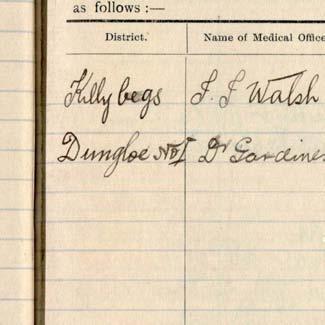 as follows :—
District. Name of Medical Office
Killybegs J. J Walsh
Dungloe No I Dr Gardiner